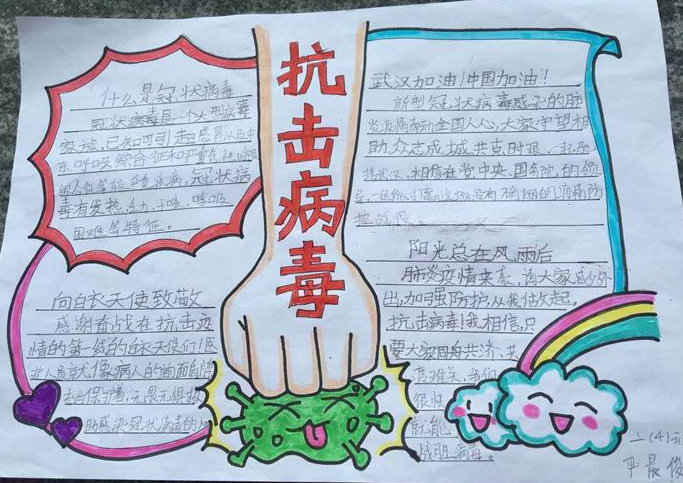 抗击病毒
什么是冠状病毒
冠状病毒是一个大型病毒
家族,已知可引起感冒以及中
东呼吸综合征和严重急性呼吸
综合征等较严重疾病。冠状病
毒有发热、乏力、干咳、呼吸
困难等特征。
向白衣天使致敬
感谢奋战在抗击疫
情的第一线的白衣天使们!医
护人员就像病人的前面
保护者,无畏无惧
感染冠状病毒的
武汉加油!中国加油!
新型冠状病毒感染的肺
炎疫情牵动全国人心,大家守望相
助、众志成城、共克时艰,一起
武汉,相信在党中央、国务院的领
导,一定能打赢这场没有硝烟的疫情防
控战役。
阳光总在风雨后
肺炎疫情来袭,请大家减少外
出,加强防护,从我做起,
抗击病毒!我相信,只
要大家同舟共济,共
度难关,我们
很快
就能
战胜病毒。
二(4)